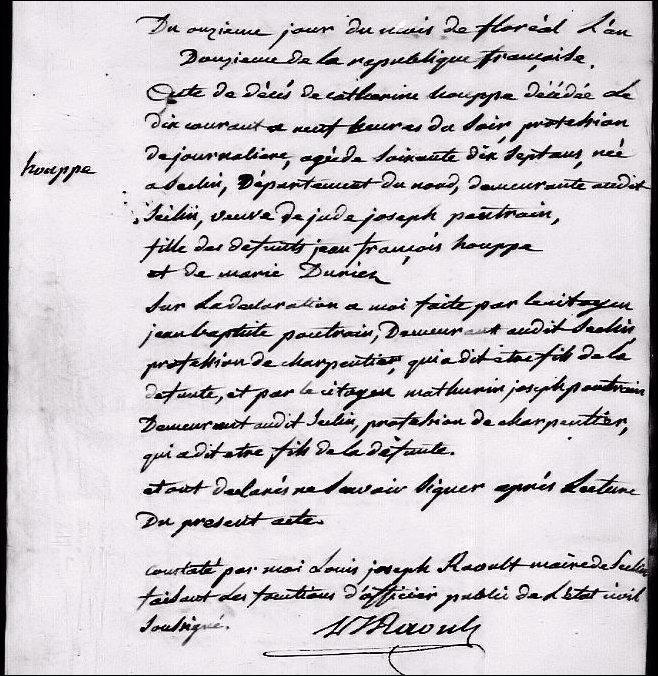 Du onzieme jour du mois de floréal L'an
Douzieme de la republique françoise.
Acte de décés de catherine houppe décédée Le
dix courant a neuf heures du Soir, profession
de journaliere, agée de Soixante dix Sept ans, née
houppe
a Seclin, Département du nord, demeurante audit
Seclin, veuve de jude joseph poutrain,
fille des defunts jean françois houppe
et de marie Duriez
Sur La declaration a moi faite par le citoyen
jean baptiste poutrain, Demeurant audit Seclin,
profession de charpentier, qui a dit etre fils de la
defunte, et par le citoyen mathurin joseph poutrain
Demeurant audit Seclin, profession de charpentier,
qui a dit etre fils de la défunte.
et ont declarés ne Savoir Signer après Lecture
Du present acte.
Constaté par moi Louis joseph Raoult maire de Seclin
faisant Les fonctions d'officier public de L'état civil
Soussigné.
LJ Raoult